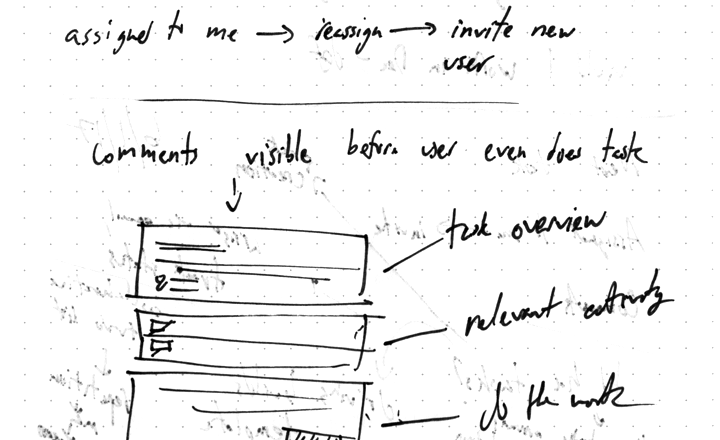 assigned to me → reassign → invite new
user
Comments visible before user even does task
task overview
relevant activity
do the work